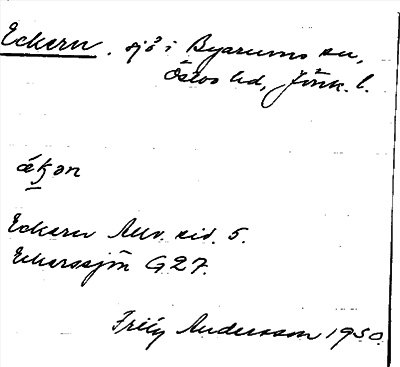 Eckern, sjö i Byarums sn,
Östbo hd, Jönk. l.
Eckern Allv. sid. 5.
Eckerssjön G 27.
Fritz Andersson 1950